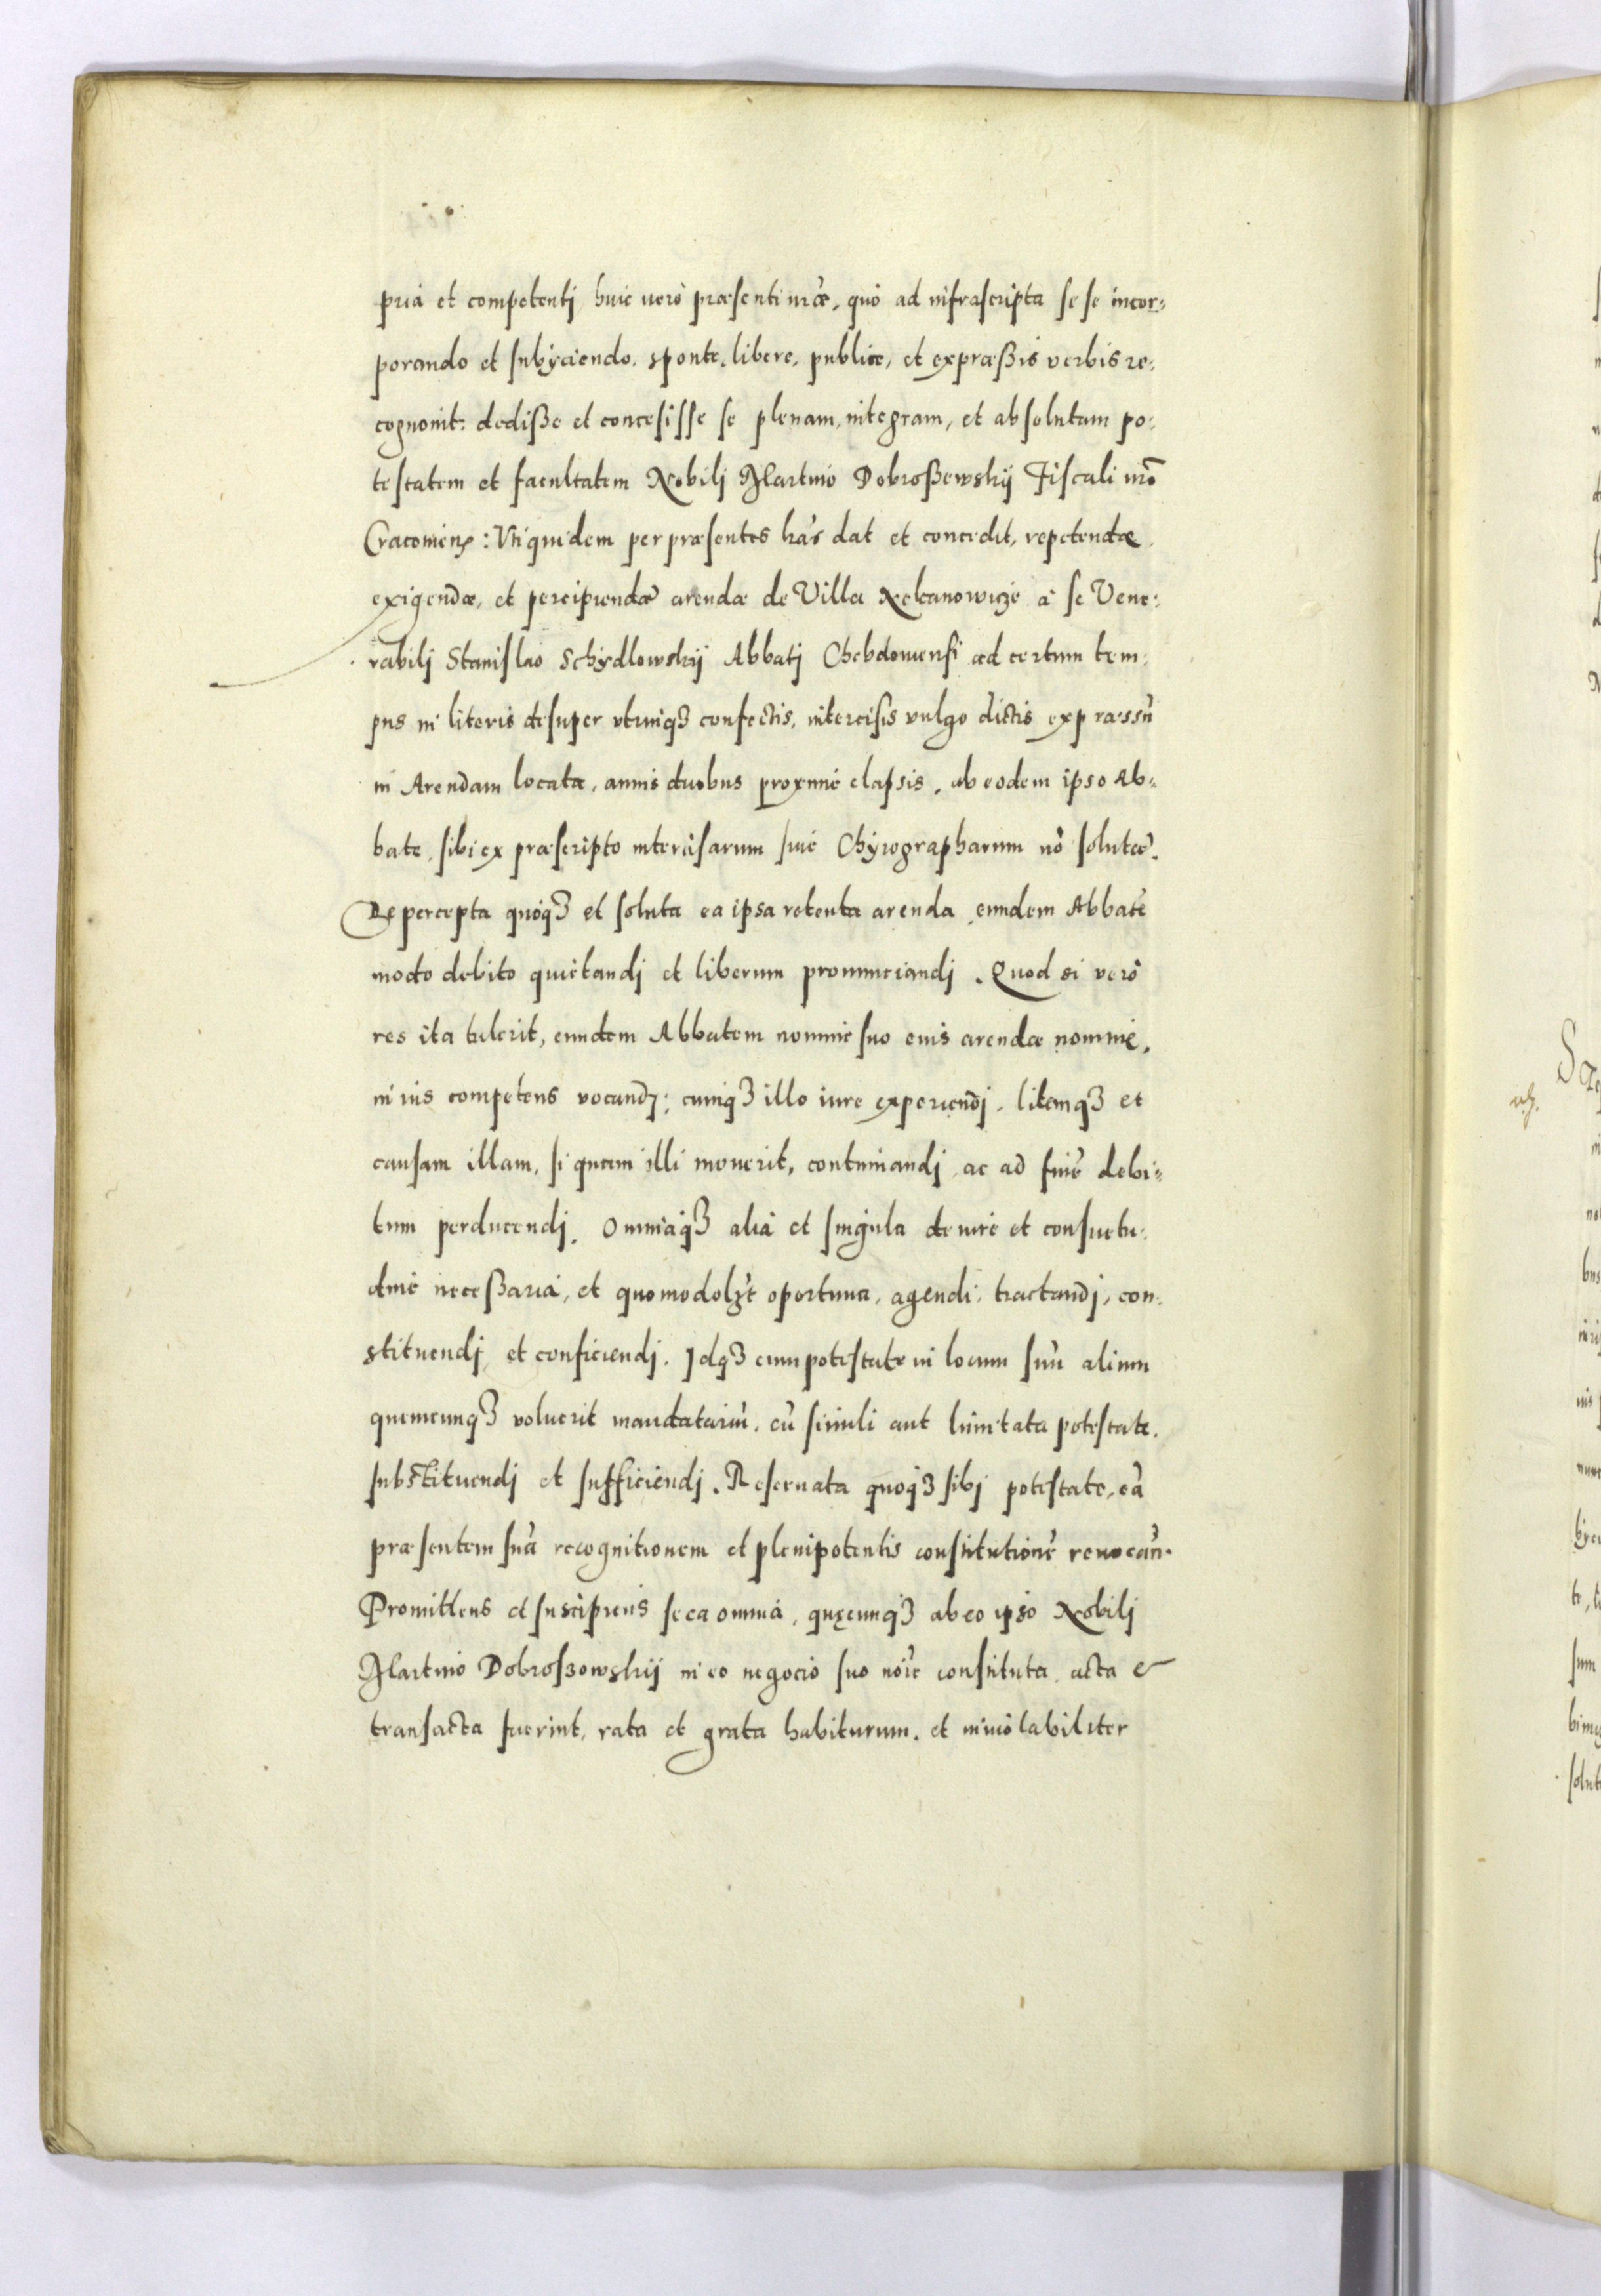 pria et competentj huic uerò præsenti nr̃æ, quò ad infrascripta se se incor⸗
porando et subÿciendo. sponte, libere, publice, et expræßis verbis re⸗
cognouit: dedisse et concesisse se plenam, integram, et absolutam po⸗
testatem et facultatem Nobilj Martino Dobroßewskÿ Fiscali nr̃o
Cracouieñ: Vti quidem per præsentes has dat et concedit, repetendæ
exigendæ, et percipiendæ arendæ de Villa Xelcanowicze à se Vene⸗
rabilj Stanislao Schÿdlowskÿ Abbatj Chebdouiensi ad certum tem⸗
pus in literis desuper vtrinqꝫ confectis, intercisis vulgo dictis expræssũ
in Arendam locatæ, annis duobus proxime elapsis, ab eodem ipso Ab⸗
bate, sibi ex præscripto intercisarum siue Chÿrographarum nõ solutæ.
De percepta quoqꝫ et soluta ea ipsa retenta arenda eundem Abbatẽ
modo debito quietandj et liberum pronunciandj. Quod si verò
res ita tulerit, eundem Abbatem nomine suo eius arendæ nomine,
in ius competens vocandj; cumqꝫ illo iure experiendj, litemqꝫ et
causam illam, si quam illi mouerit, continuandj ac ad finẽ debi⸗
tum perducendj. Omniaqꝫ alia et singula de iure et consuetu⸗
dine necessaria, et quomodolꝫt oportuna, agendi, tractandj, con⸗
stituendj et conficiendj. Idqꝫ cum potestate in locum suũ alium
quemcunqꝫ voluerit mandatariũ, cũ simili aut limitata potestate
substituendj et sufficiendj. Reseruata quoqꝫ sibj potestate, eã
præsentem suã recognitionem et plenipotentis constitutionẽ reuocañ.
Promittens et suscipiens se ea omnia, quęcunqꝫ ab eo ipso Nobilj
Martino Dobroszowskÿ in eo negocio suo noĩe constituta acta &
transacta fuerint, rata et grata habiturum, et inuiolabiliter